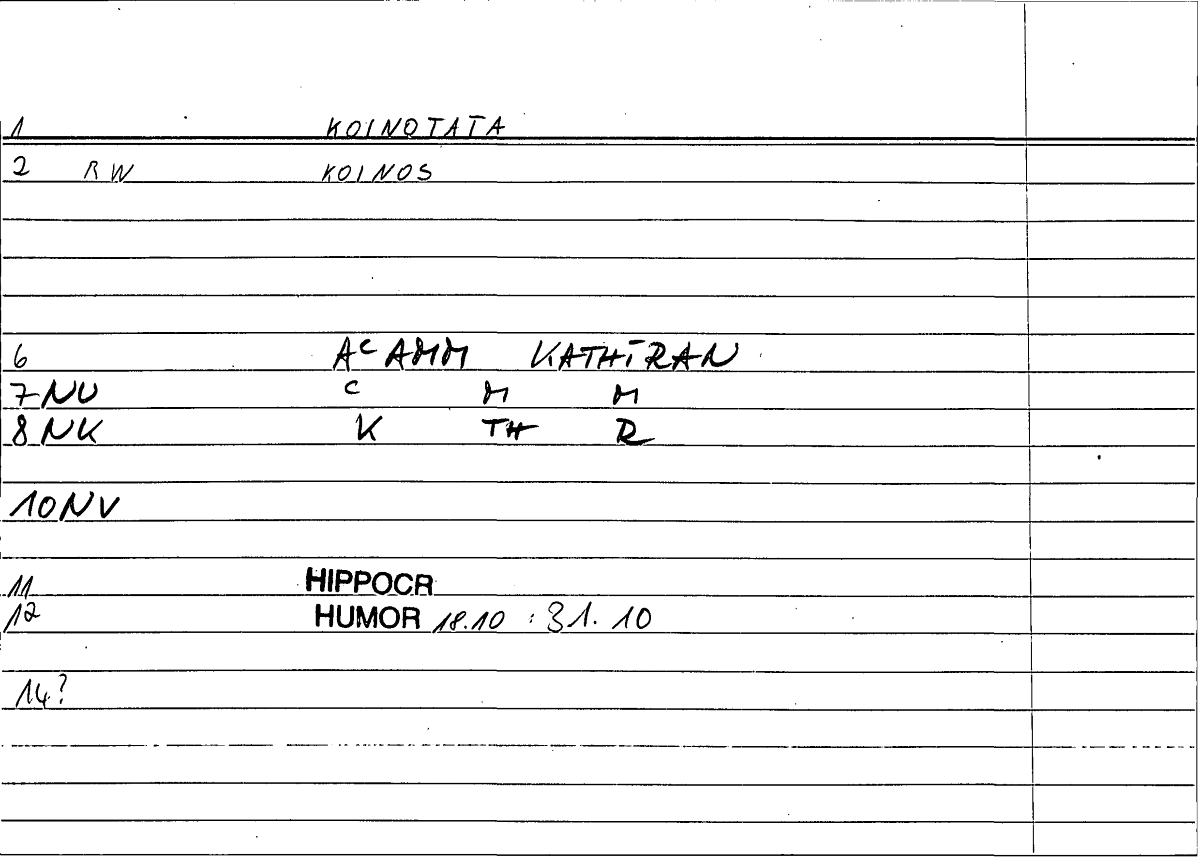 1 KOINOTATA
2 RW KOINOS
6 AᶜAMM KATHĪRAN
7 NU C M M
8 NK K TH R
10 NV
11 HIPPOCR
12 HUMOR 18.10 : 31.10
14?